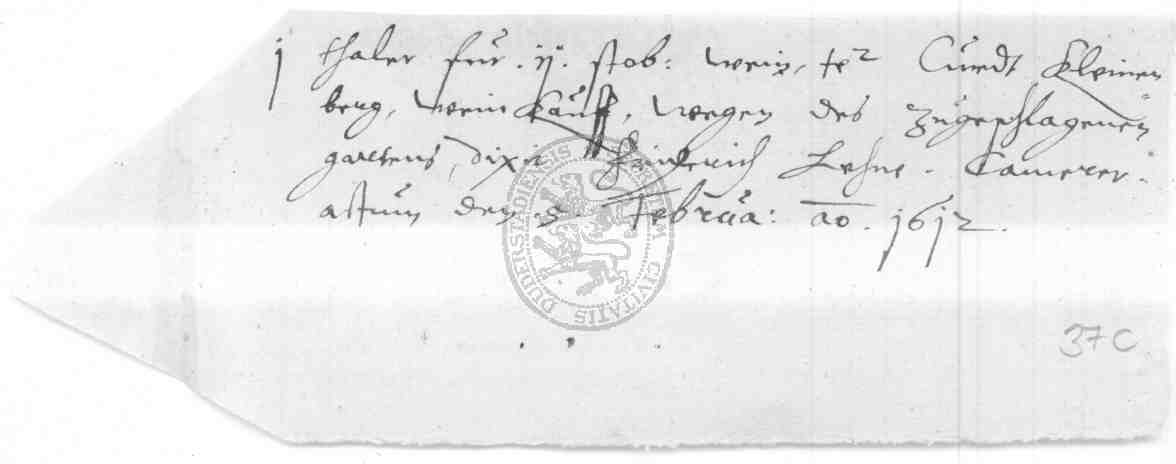 j thaler für .ij. stob: wein, Curdt Kleinen
berg, wein Kauff, wegen des zugeschlagenen
gartens, dixit Friderich Lehne. Camerer.
actum den .8. Februa: ao. 1612.
SIGILLUM CIVITATIS DUDERSTADIENSIS
37C